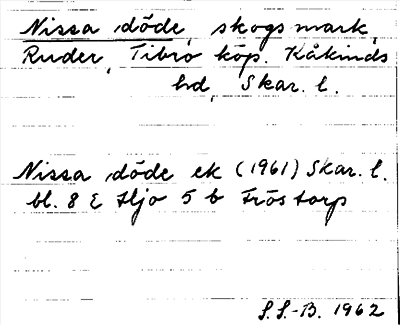 Nissa döde, skogsmark,
Ruder, Tibro köp. Kåkinds
hd, Skar. l.
Nissa döde ek (1961) Skar. l.
bl. 8 E Hjo 5 b Fröstorp
S.S.-B. 1962